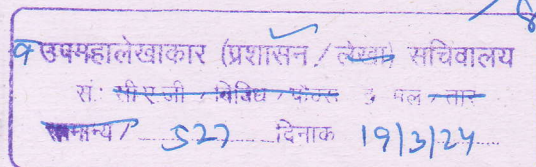 उपमहालेखाकार (प्रशासन / लेखा) सचिवालय
सं: सी.ए.जी / विविध / फैक्स / तार
सामान्य / 527 दिनाक 19/3/24